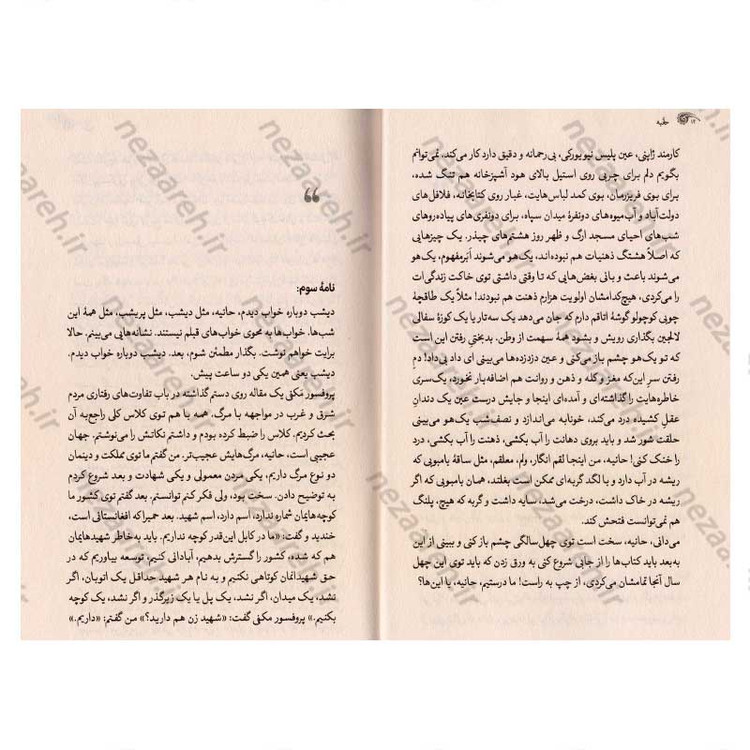 ۱۲ حانیه
کارمند ژاپنی، عین پلیس نیویورکی، بی‌رحمانه و دقیق دارد کار می‌کند، نمی‌توانم
بگویم دلم برای چربی روی استیل بالای هود آشپزخانه هم تنگ شده،
برای بوی فریزرمان، بوی کمد لباس‌هایت، غبار روی کتابخانه، فلافل‌های
دولت‌آباد و آب‌میوه‌های دونفرهٔ میدان سپاه، برای دونفری‌های پیاده‌روهای
شب‌های احیای مسجد ارگ و ظهر روز هشتم‌های چیذر. یک چیزهایی
که اصلاً هشتگ ذهنیات هم نبوده‌اند، یک‌هو می‌شوند اَبَرمفهوم، یک‌هو
می‌شوند باعث و بانی بغض‌هایی که تا وقتی داشتی توی خاکت زندگی‌ات
را می‌کردی، هیچ‌کدامشان اولویت هزارم ذهنت هم نبودند! مثلاً یک طاقچهٔ
چوبی کوچولو گوشهٔ اتاقم دارم که جان می‌دهد یک سه‌تار یا یک کوزهٔ سفالی
لالجین بگذاری رویش و بشود همهٔ سهمت از وطن. بدبختی رفتن این است
که تو یک‌هو چشم باز می‌کنی و عین دزدزده‌ها می‌بینی ای داد بی‌داد! دمِ
رفتن سرِ این‌که مغز و کله و ذهن و روانت هم اضافه‌بار نخورد، یک‌سری
خاطره‌هایت را گذاشته‌ای و آمده‌ای اینجا و جایش درست عین یک دندانِ
عقلِ کشیده درد می‌کند، خونابه می‌اندازد و نصف‌شب یک‌هو می‌بینی
حلقت شور شد و باید بروی دهانت را آب بکشی، ذهنت را آب بکشی، درد
را خنک کنی! حانیه، من اینجا لقم انگار، ولم، معلقم، مثل ساقهٔ بامبویی که
ریشه در آب دارد و با لگد گربه‌ای ممکن است بغلتد، همان بامبویی که اگر
ریشه در خاک داشت، درخت می‌شد، سایه داشت و گربه که هیچ، پلنگ
هم نمی‌توانست فتحش کند.
می‌دانی، حانیه، سخت است توی چهل‌سالگی چشم باز کنی و ببینی از این
به‌بعد باید کتاب‌ها را از جایی شروع کنی به ورق زدن که باید توی این چهل
سال آنجا تمامشان می‌کردی، از چپ به راست! ما درستیم، حانیه، یا این‌ها؟
نامهٔ سوم:
دیشب دوباره خواب دیدم، حانیه، مثل دیشب، مثل پریشب، مثل همهٔ این
شب‌ها. خواب‌ها به محوی خواب‌های قبلم نیستند. نشانه‌هایی می‌بینم. حالا
برایت خواهم نوشت. بگذار مطمئن شوم، بعد. دیشب دوباره خواب دیدم.
دیشب یعنی همین یکی دو ساعت پیش.
پروفسور مَکفی یک مقاله روی دستم گذاشته در باب تفاوت‌های رفتاری مردم
شرق و غرب در مواجهه با مرگ. همه با هم توی کلاس کلی راجع‌به آن
بحث کردیم. کلاس را ضبط کرده بودم و داشتم نکاتش را می‌نوشتم. جهان
عجیبی است، حانیه، مرگ‌هایش عجیب‌تر. من گفتم ما توی مملکت و دینمان
دو نوع مرگ داریم، یکی مردن معمولی و یکی شهادت و بعد شروع کردم
به توضیح دادن. سخت بود، ولی فکر کنم توانستم. بعد گفتم توی کشور ما
کوچه‌هایمان شماره ندارد، اسم دارد، اسم شهید. بعد حمیرا که افغانستانی است،
خندید و گفت: «ما در کابل این‌قدر کوچه نداریم. باید به‌خاطر شهیدهایمان
هم که شده، کشور را گسترش بدهیم، آبادانی کنیم، توسعه بیاوریم که در
حق شهیدانمان کوتاهی نکنیم و به نام هر شهید حداقل یک اتوبان، اگر
نشد، یک میدان، اگر نشد، یک پل یا یک زیرگذر و اگر نشد، یک کوچه
بکنیم.» پروفسور مکفی گفت: «شهید زن هم دارید؟» من گفتم: «داریم.»
nezaareh.ir